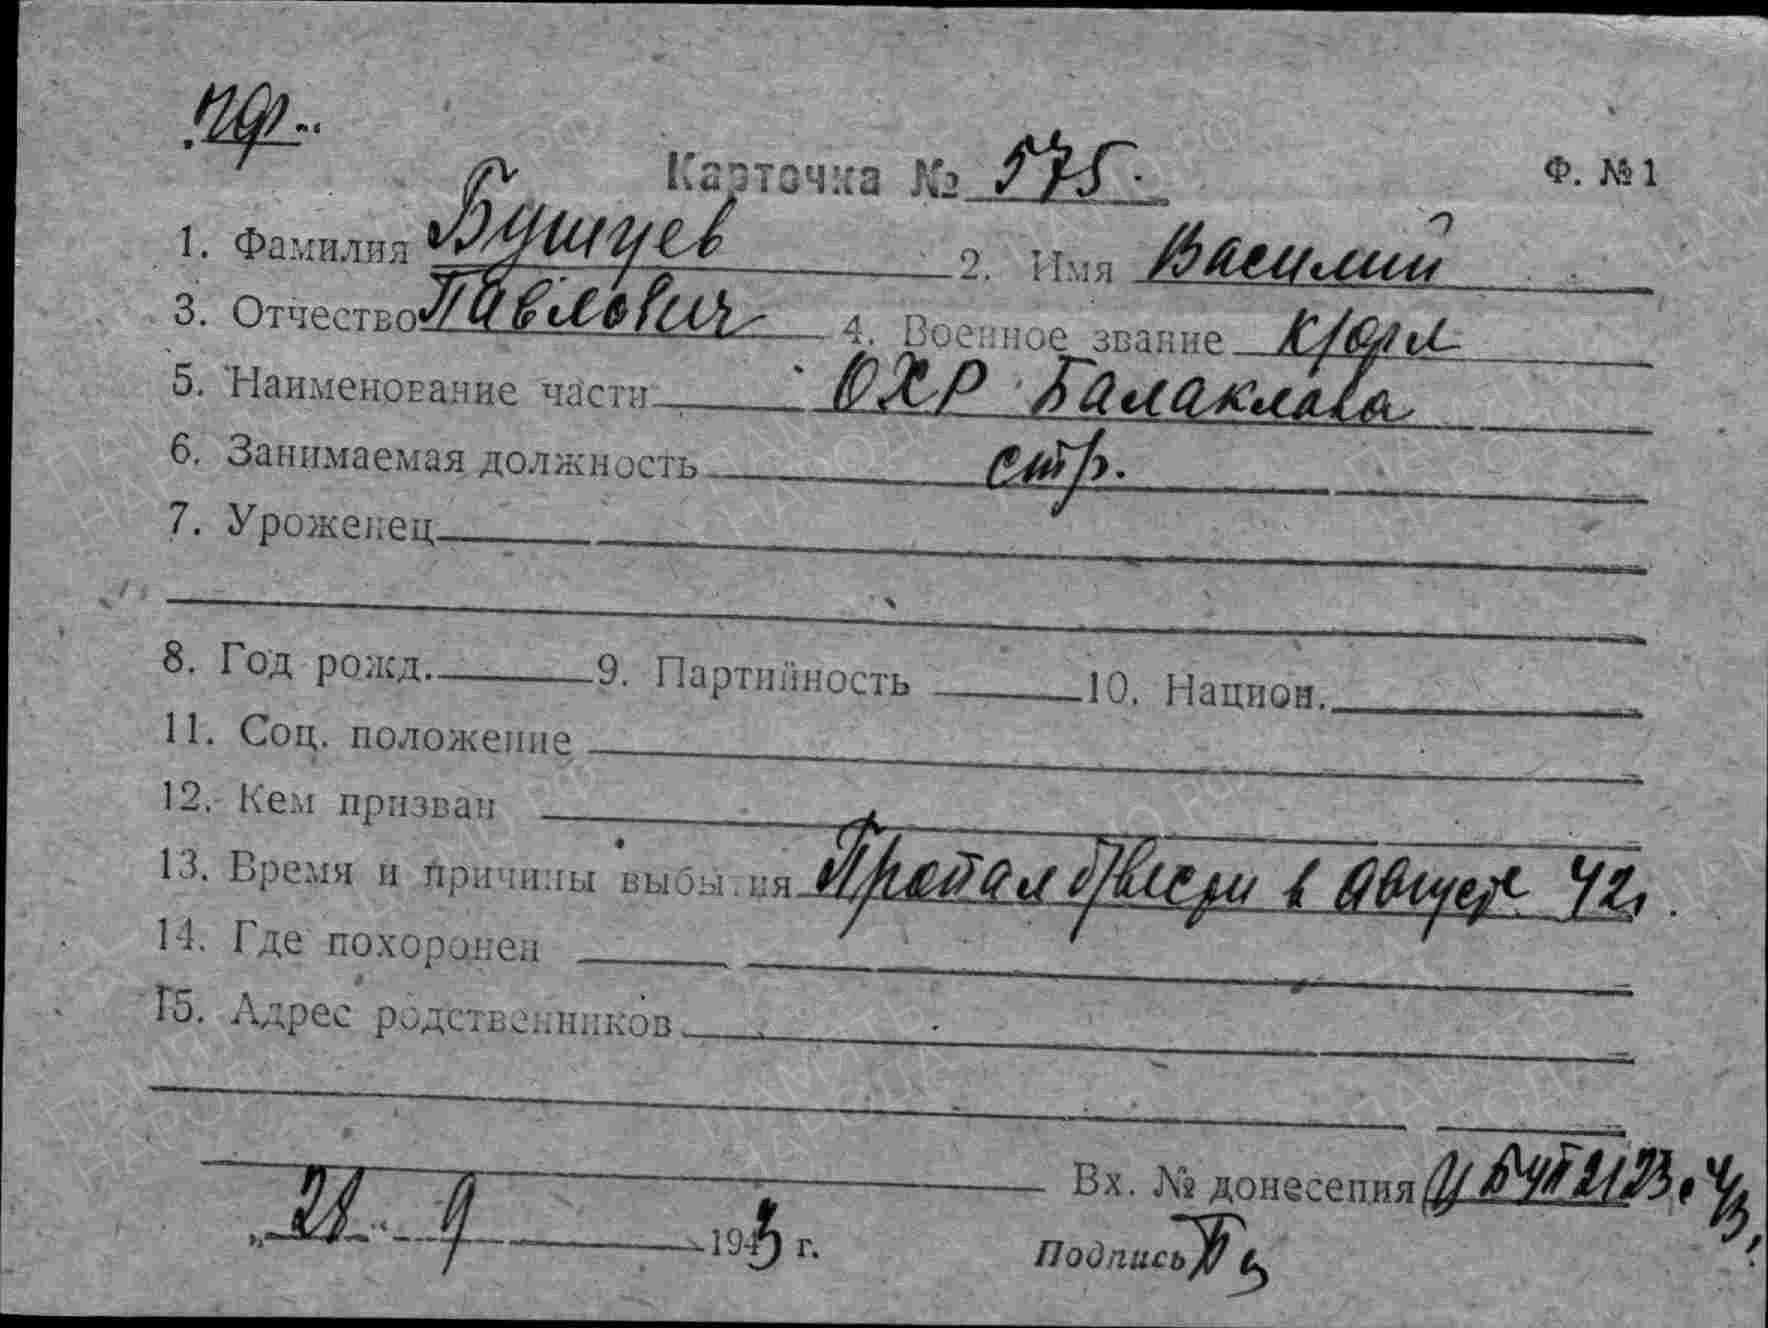 Карточка № 575. Ф. №1
1. Фамилия Бушуев 2. Имя Василий
3. Отчество Павлович 4. Военное звание к/фл
5. Наименование части ОХР Балаклава
6. Занимаемая должность стр.
7. Уроженец
8. Год рожд. 9. Партийность 10. Национ.
11. Соц. положение
12. Кем призван
13. Время и причины выбытия Пропал б/вести в августе 42г.
14. Где похоронен
15. Адрес родственников
Вх. № донесения
"28" 9 1943 г. Подпись